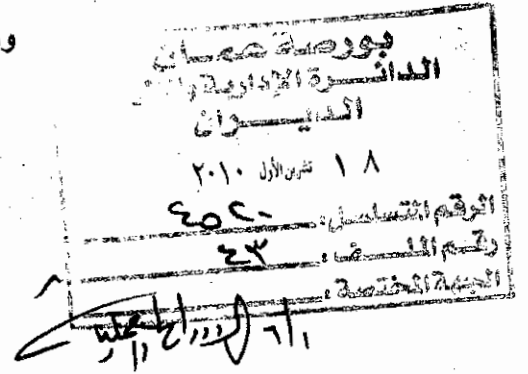 و
بورصة عمان
الدائرة الإدارية
الديوان
١٨ تشرين الأول ٢٠١٠
الرقم المتسلسل: ٤٥٢٠
رقم الملف: ٤٣
الجهة المختصة: